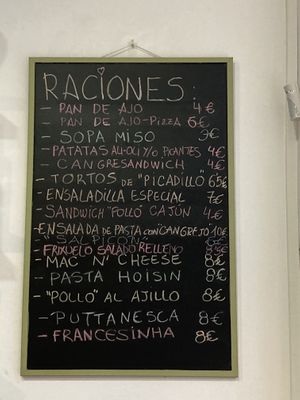 RACIONES:
- PAN DE AJO 4€
- PAN DE AJO-PIZZA 6€
- SOPA MISO 9€
- PATATAS ALI-OLI Y/O PICANTES 4€
- CANGRESANDWICH 4€
- TORTOS DE "PICADILLO" 6'5€
- ENSALADILLA ESPECIAL 7€
- SANDWICH "POLLO" CAJÚN 4€
ENSALADA DE PASTA CON CANGREJO 10€
- "SALPICÓN" 6€
FRIXUELO SALADO RELLENO
- MAC 'N' CHEESE 8€
- PASTA HOISIN 8€
- "POLLO" AL AJILLO 8€
- PUTTANESCA 8€
- FRANCESINHA 8€